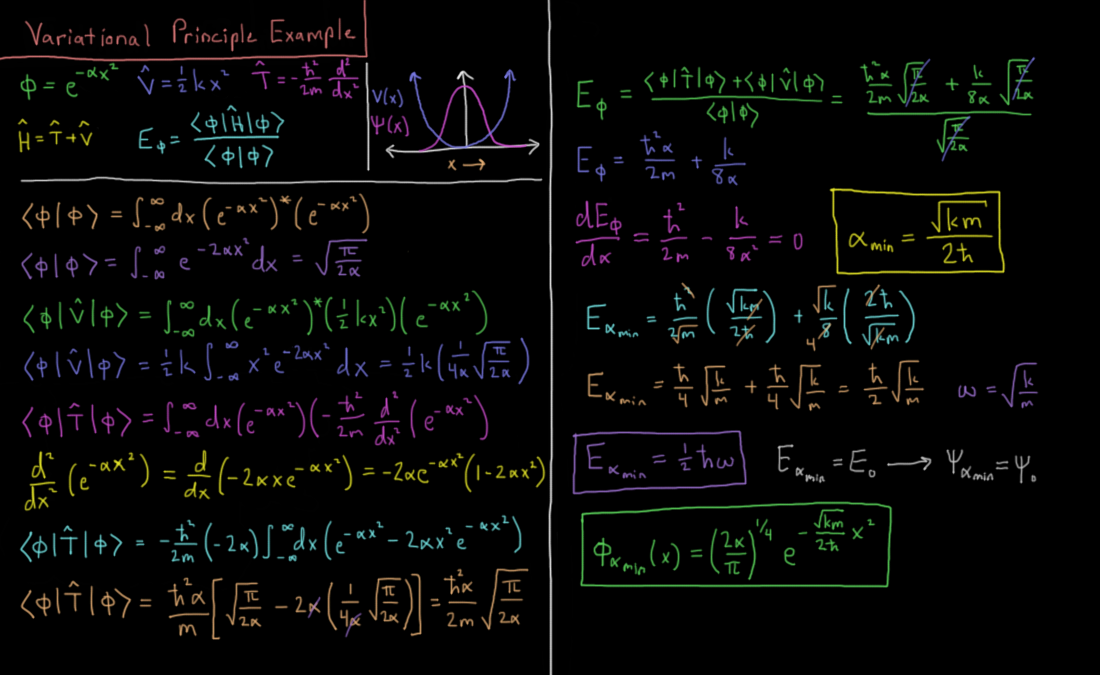 Variational Principle Example
ϕ = e^{-αx²} V̂ = ½kx² T̂ = -ħ²/2m d²/dx²
Ĥ = T̂ + V̂ E_ϕ = ⟨ϕ|Ĥ|ϕ⟩ / ⟨ϕ|ϕ⟩
V(x)
Ψ(x)
x →
⟨ϕ|ϕ⟩ = ∫_{-∞}^{∞} dx (e^{-αx²})* (e^{-αx²})
⟨ϕ|ϕ⟩ = ∫_{-∞}^{∞} e^{-2αx²} dx = √(π/2α)
⟨ϕ|V̂|ϕ⟩ = ∫_{-∞}^{∞} dx (e^{-αx²})* (½kx²) (e^{-αx²})
⟨ϕ|V̂|ϕ⟩ = ½k ∫_{-∞}^{∞} x² e^{-2αx²} dx = ½k (1/4α √(π/2α))
⟨ϕ|T̂|ϕ⟩ = ∫_{-∞}^{∞} dx (e^{-αx²}) (-ħ²/2m d²/dx² (e^{-αx²})
d²/dx² (e^{-αx²}) = d/dx (-2αx e^{-αx²}) = -2αe^{-αx²} (1-2αx²)
⟨ϕ|T̂|ϕ⟩ = -ħ²/2m (-2α) ∫_{-∞}^{∞} dx (e^{-αx²} - 2αx² e^{-αx²})
⟨ϕ|T̂|ϕ⟩ = ħ²α/m [√(π/2α) - 2α (1/4α √(π/2α))] = ħ²α/2m √(π/2α)
E_ϕ = (⟨ϕ|T̂|ϕ⟩ + ⟨ϕ|V̂|ϕ⟩) / ⟨ϕ|ϕ⟩ = (ħ²α/2m √(π/2α) + k/8α √(π/2α)) / √(π/2α)
E_ϕ = ħ²α/2m + k/8α
dE_ϕ/dα = ħ²/2m - k/8α² = 0
α_min = √km / 2ħ
E_{α_min} = ħ²/2√m (√km/2ħ) + √k/8 4 (2ħ/√km)
E_{α_min} = ħ/4 √(k/m) + ħ/4 √(k/m) = ħ/2 √(k/m) ω = √(k/m)
E_{α_min} = ½ħω
E_{α_min} = E₀ → Ψ_{α_min} = Ψ₀
ϕ_{α_min}(x) = (2α/π)^{1/4} e^{-√km/2ħ x²}